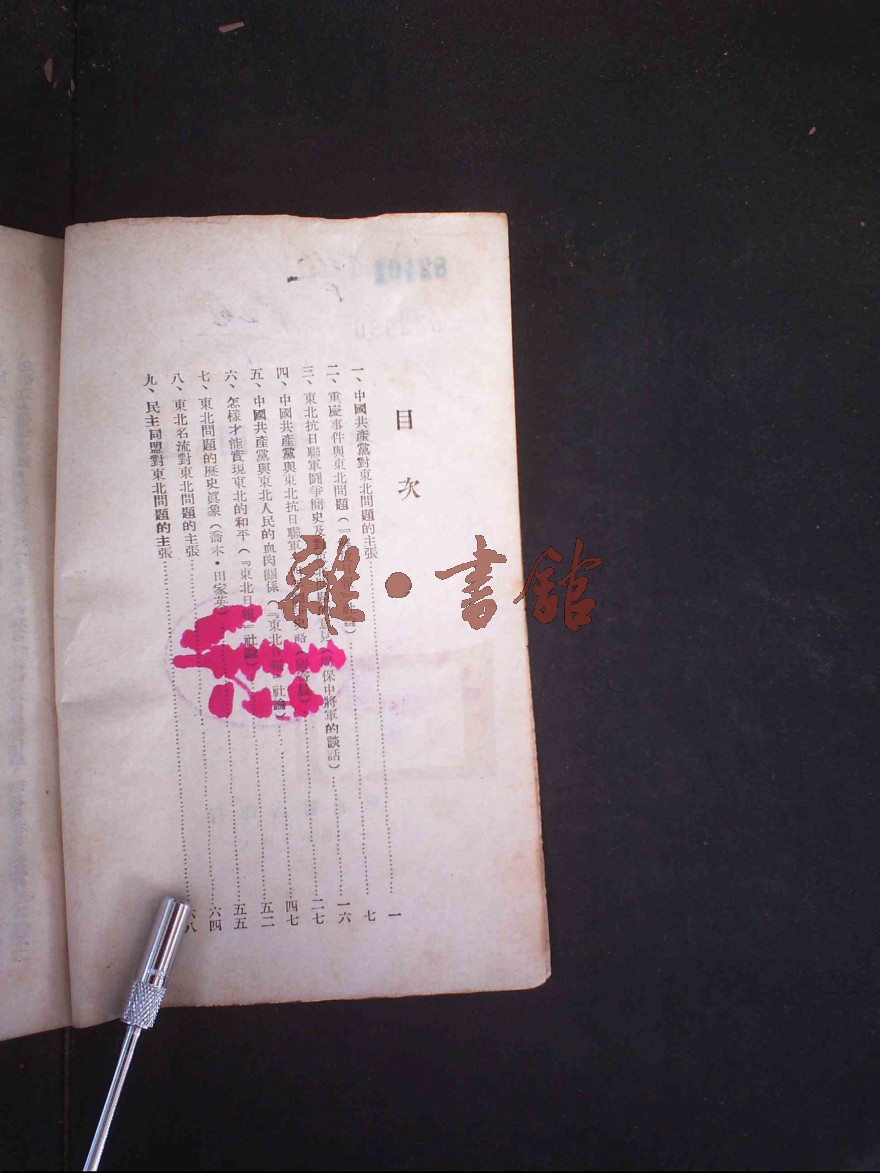 82101
目次
一、中國共產黨對東北問題的主張……一
二、重慶事件與東北問題（『 社論）……七
三、東北抗日聯軍鬪爭簡史及對 見（ 保中將軍的談話）……一六
四、中國共產黨與東北抗日聯軍 史略……二七
五、中國共產黨與東北人民的血肉關係（『東北日報』社論）……四七
六、怎樣才能實現東北的和平（『東北日報』社論）……五二
七、東北問題的歷史眞象（喬木・田家英）……五五
八、東北名流對東北問題的主張……六四
九、民主同盟對東北問題的主張……六八
雜・書館